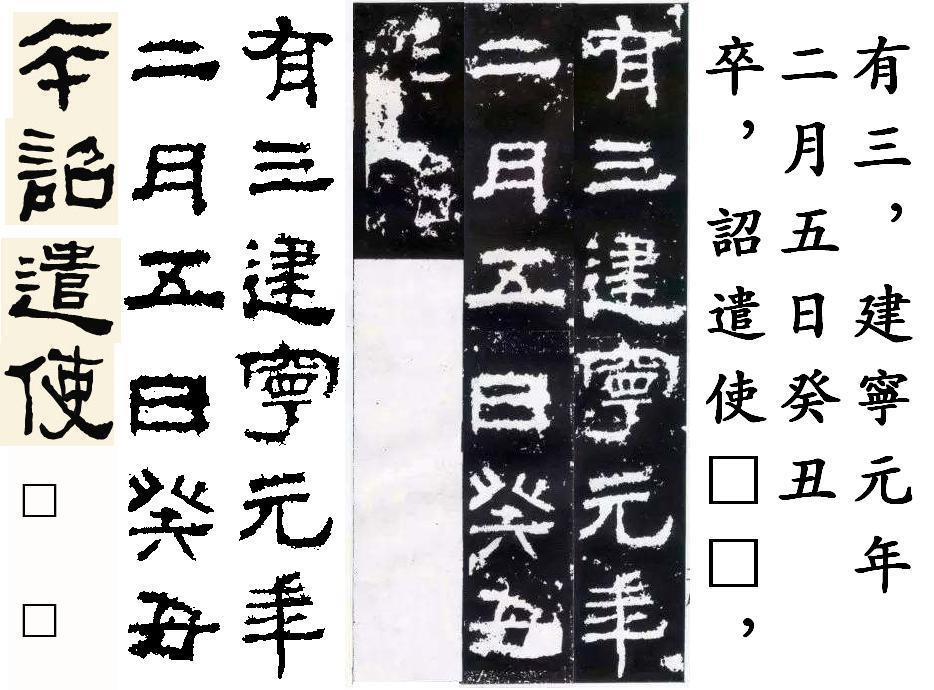 有三，建寧元年
二月五日癸丑
卒，詔遣使□□，
有三建寧元年
二月五日癸丑
有三建寧元年
二月五日癸丑
卒詔遣使□□